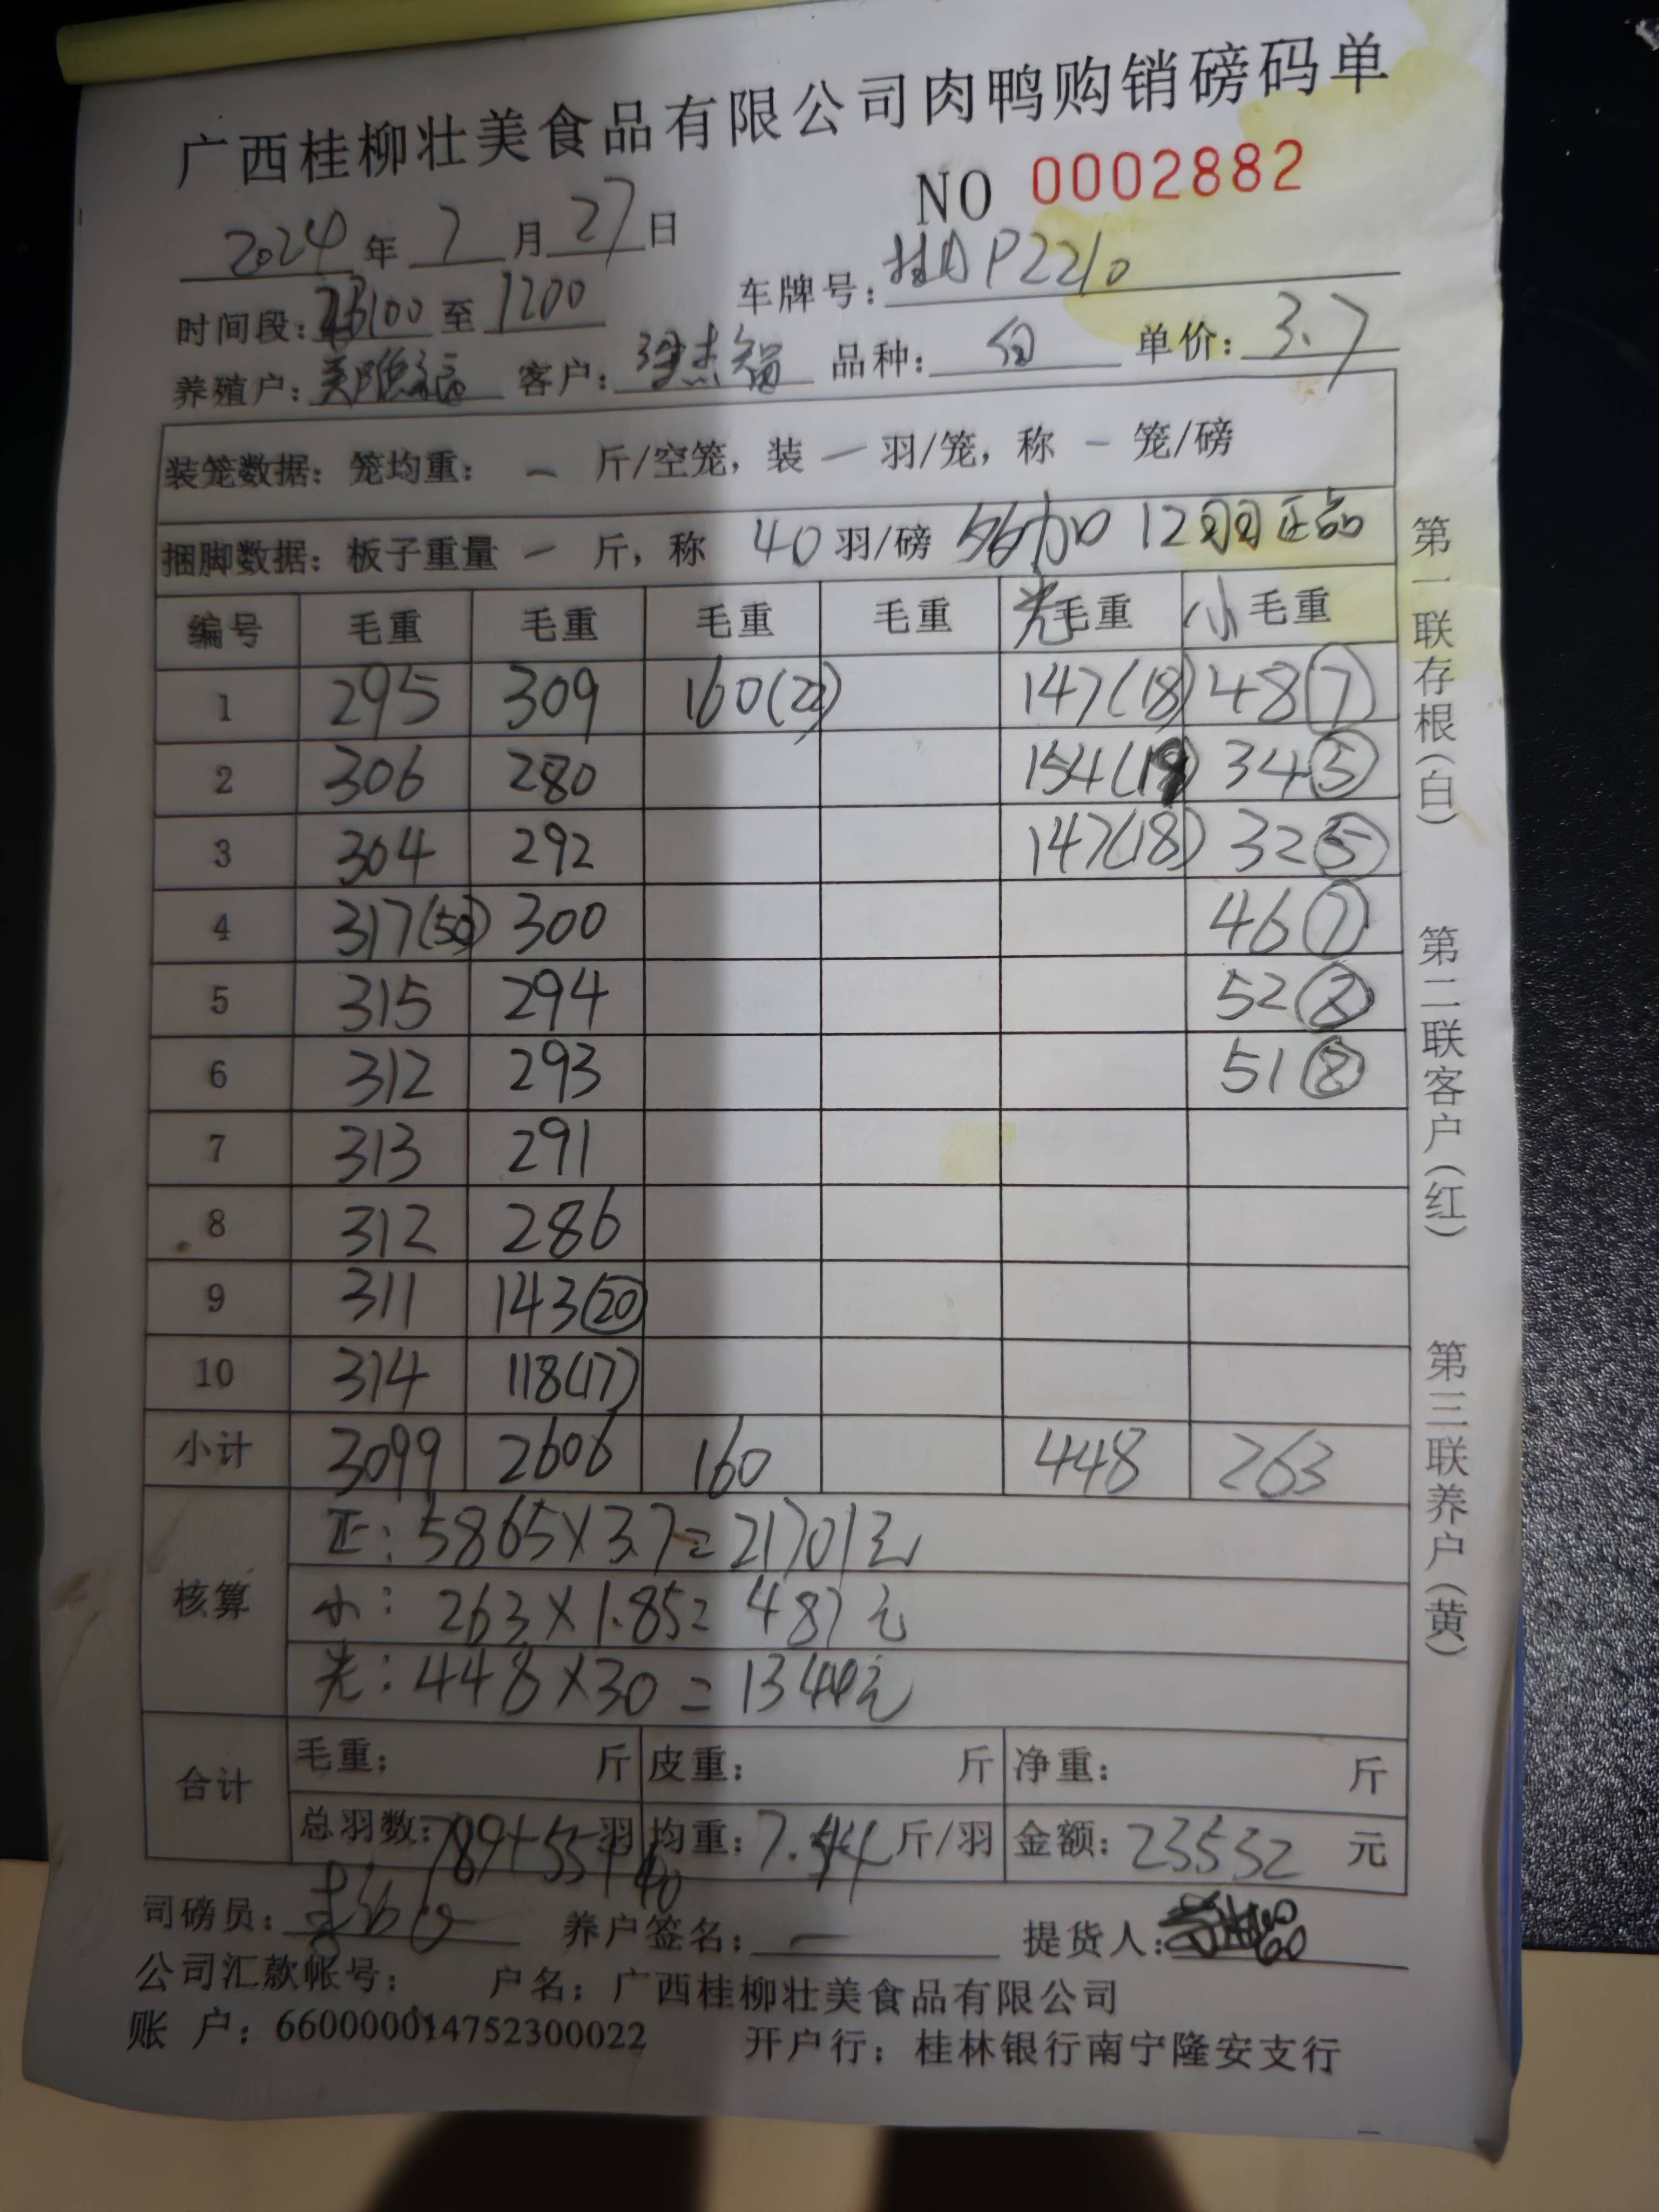 广西桂柳壮美食品有限公司肉鸭购销磅码单
NO 0002882
2024年 7月27日
时间段: 至1200 车牌号: 桂AP2210
养殖户: 客户: 品种: 白 单价: 3.7
装笼数据: 笼均重: 一 斤/空笼, 装 一 羽/笼, 称 一 笼/磅
捆脚数据: 板子重量 一 斤, 称 40 羽/磅 加 12羽正品
编号 毛重 毛重 毛重 毛重 光毛重 小毛重
1 295 309 160(22) 147(18) 48⑦
2 306 280 154(19) 34⑤
3 304 292 147(18) 32⑤
4 317(50) 300 46⑦
5 315 294 52⑧
6 312 293 51⑧
7 313 291
8 312 286
9 311 143⑳
10 314 118(17)
小计 3099 2606 160 448 263
核算
正: 5865×3.7=21701元
小: 263×1.85=487元
光: 448×30=1344元
合计
毛重: 斤 皮重: 斤 净重: 斤
总羽数: 789+55+40羽 均重: 7.44斤/羽 金额: 23532 元
司磅员: 养户签名: 一 提货人:
公司汇款帐号: 户名: 广西桂柳壮美食品有限公司
账 户: 660000014752300022 开户行: 桂林银行南宁隆安支行
第一联存根(白) 第二联客户(红) 第三联养户(黄)